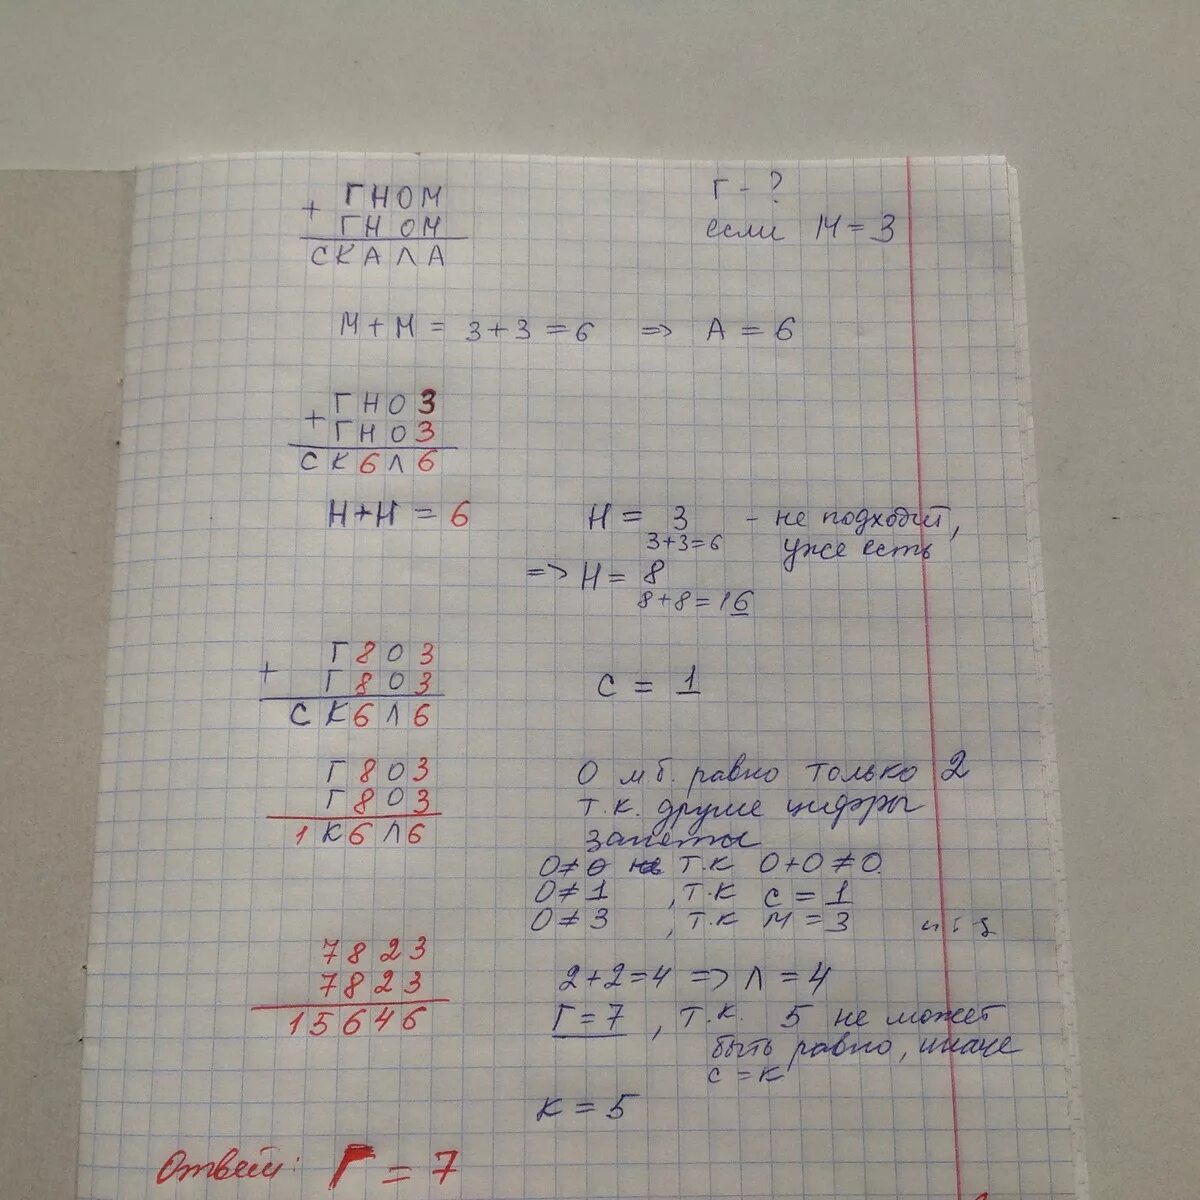 ГНОМ
+
ГНОМ
СКАЛА
Г - ?
если М = 3
М + М = 3 + 3 = 6 => А = 6
ГНО3
+
ГНО3
СК6Л6
Н + Н = 6
Н = 3 - не подходит,
3+3=6 уже есть
=> Н = 8
8+8=16
Г803
+
Г803
СК6Л6
С = 1
Г803
Г803
1К6Л6
О м.б. равно только 2
т.к. другие цифры
заняты
О ≠ 0 т.к О+О ≠ О
О ≠ 1, т.к С = 1
О ≠ 3, т.к М = 3
7823
7823
15646
2+2=4 => Л = 4
Г = 7, т.к. 5 не может
быть равно, иначе
С = К
К = 5
Ответ: Г = 7